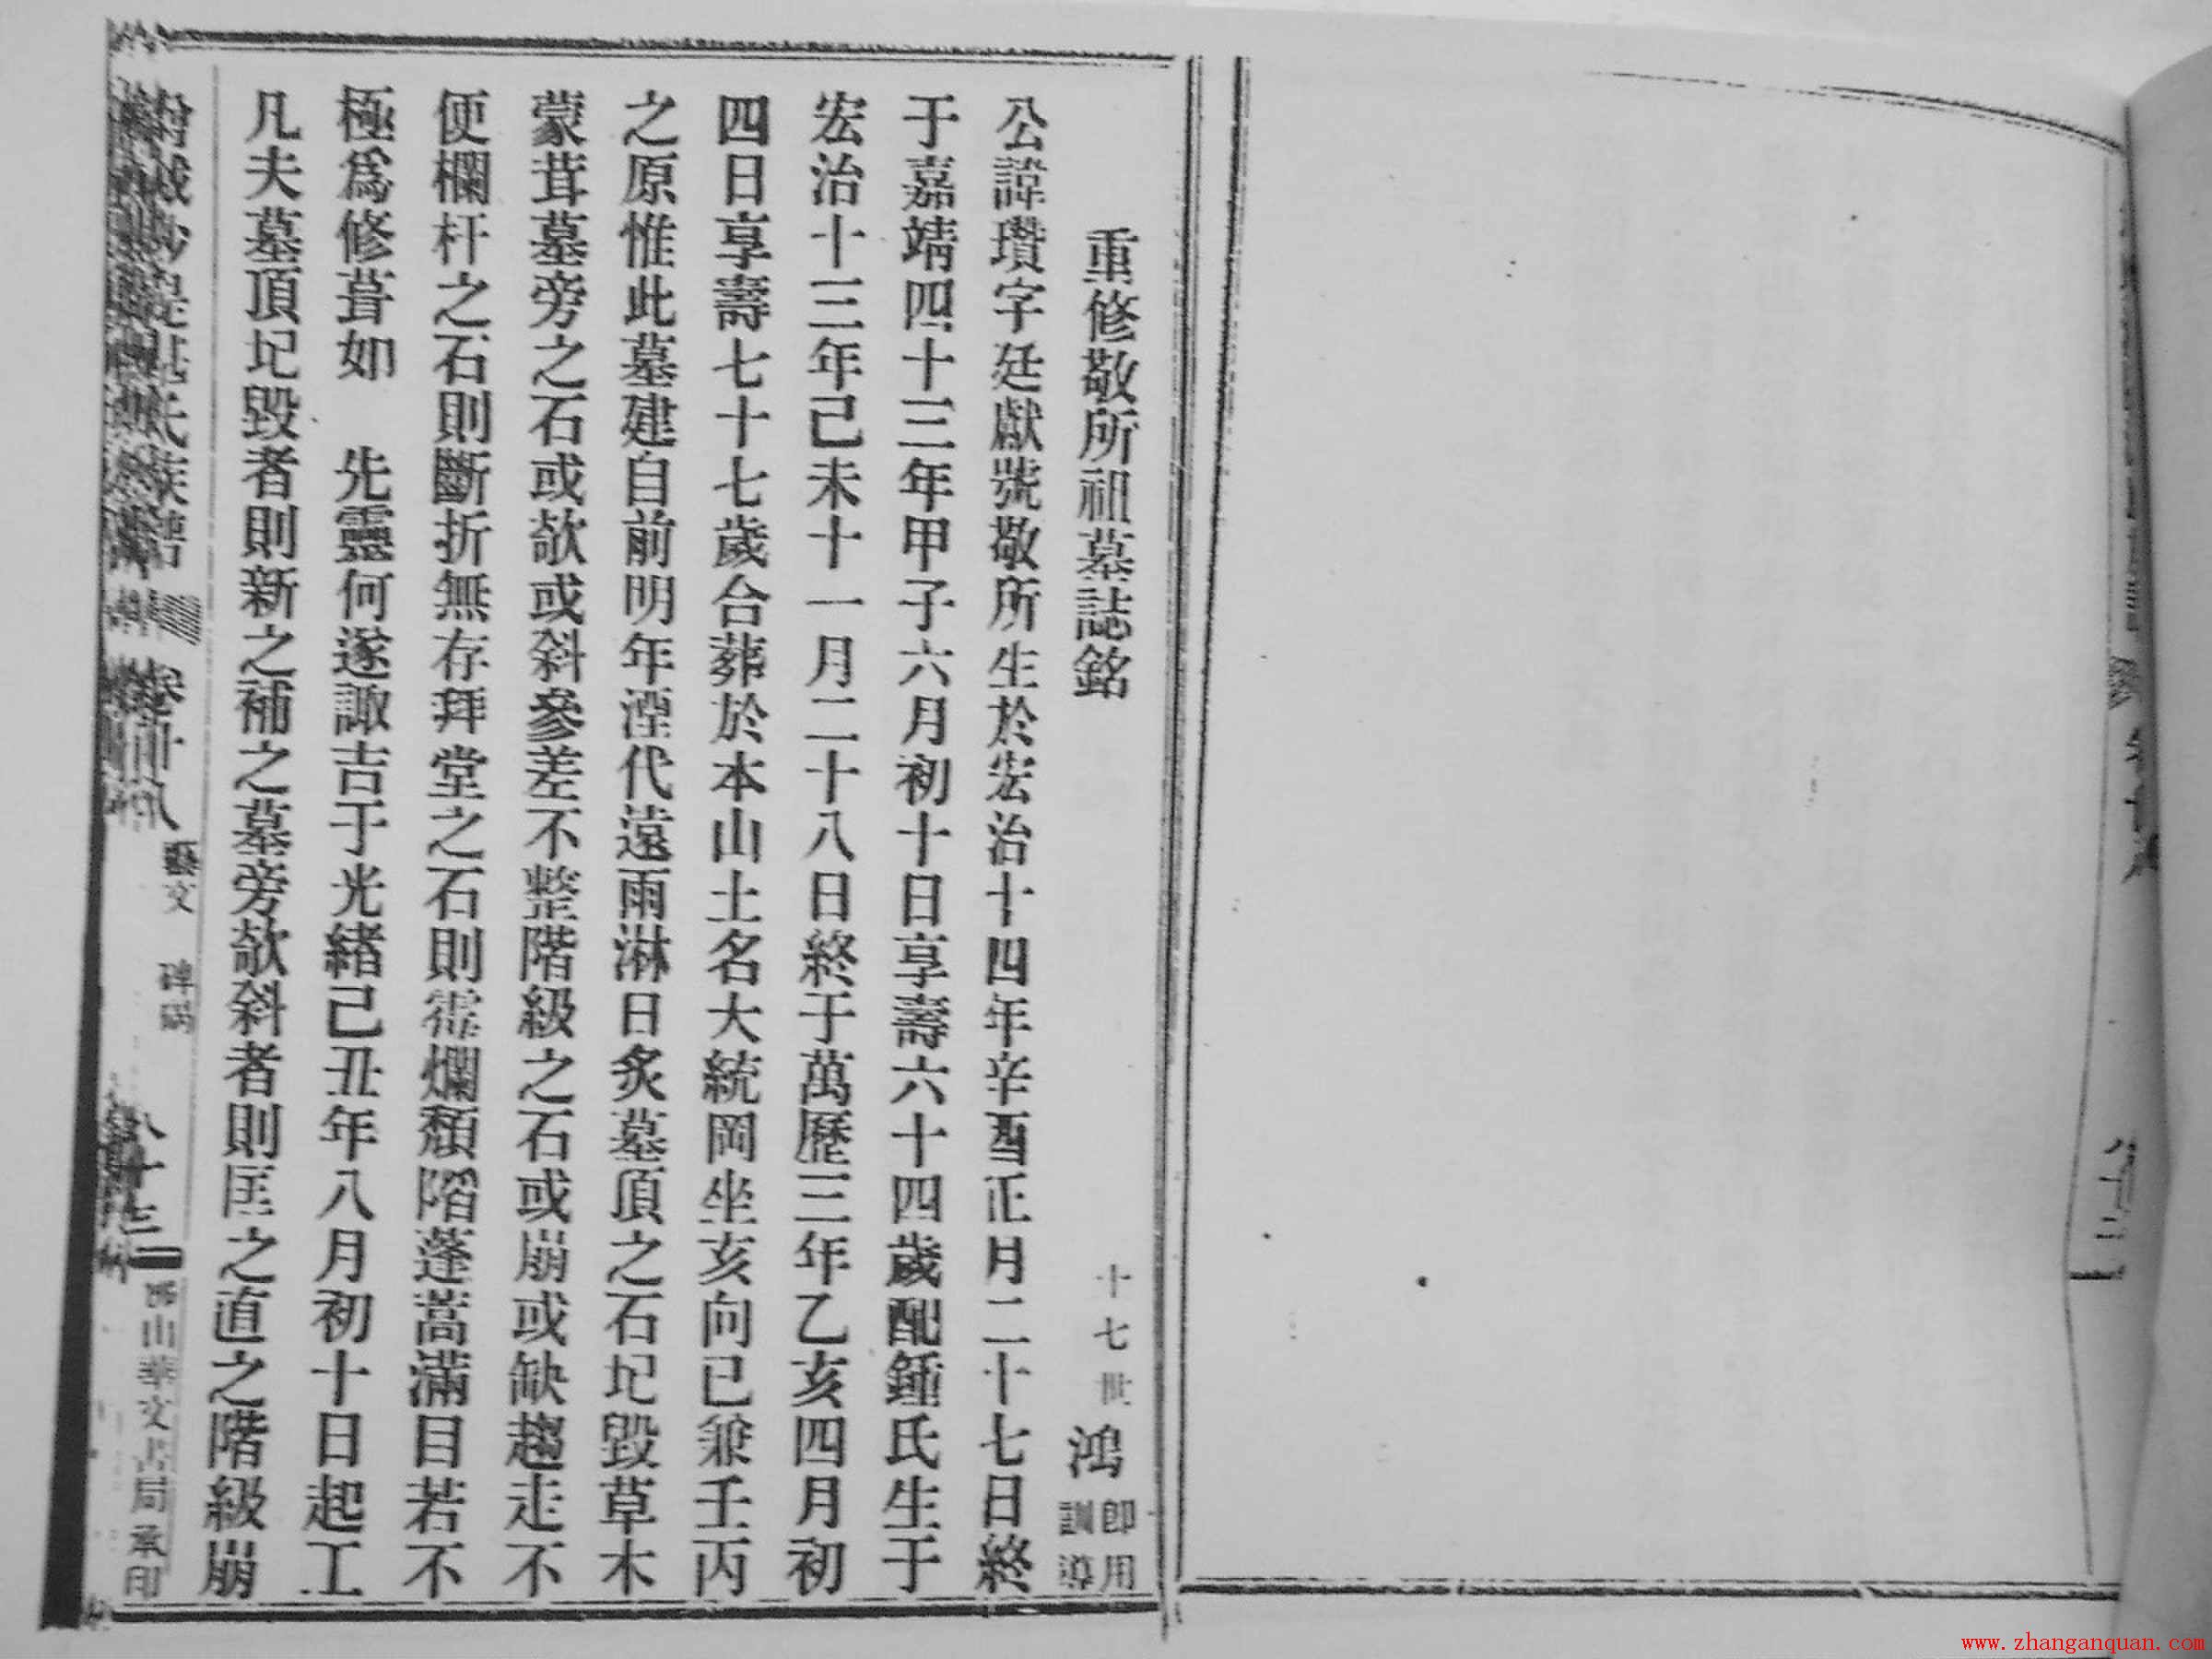 重修敬所祖墓誌銘
十七世 鴻 即用訓導
公諱瓚字廷獻號敬所生於宏治十四年辛酉正月二十七日終
于嘉靖四十三年甲子六月初十日享壽六十四歲配鍾氏生于
宏治十三年己未十一月二十八日終于萬歷三年乙亥四月初
四日享壽七十七歲合葬於本山土名大統岡坐亥向巳兼壬丙
之原惟此墓建自前明年湮代遠雨淋日炙墓頂之石圮毀草木
蒙茸墓旁之石或欹或斜參差不整階級之石或崩或缺趨走不
便欄杆之石則斷折無存拜堂之石則霑爛頽陷蓬蒿滿目若不
極爲修葺如 先靈何遂諏吉于光緒己丑年八月初十日起工
凡夫墓頂圮毀者則新之補之墓旁欹斜者則匡之直之階級崩
氏族譜
藝文 碑碣
八十三
佛山華文書局承印
八十二
www.zhanganquan.com